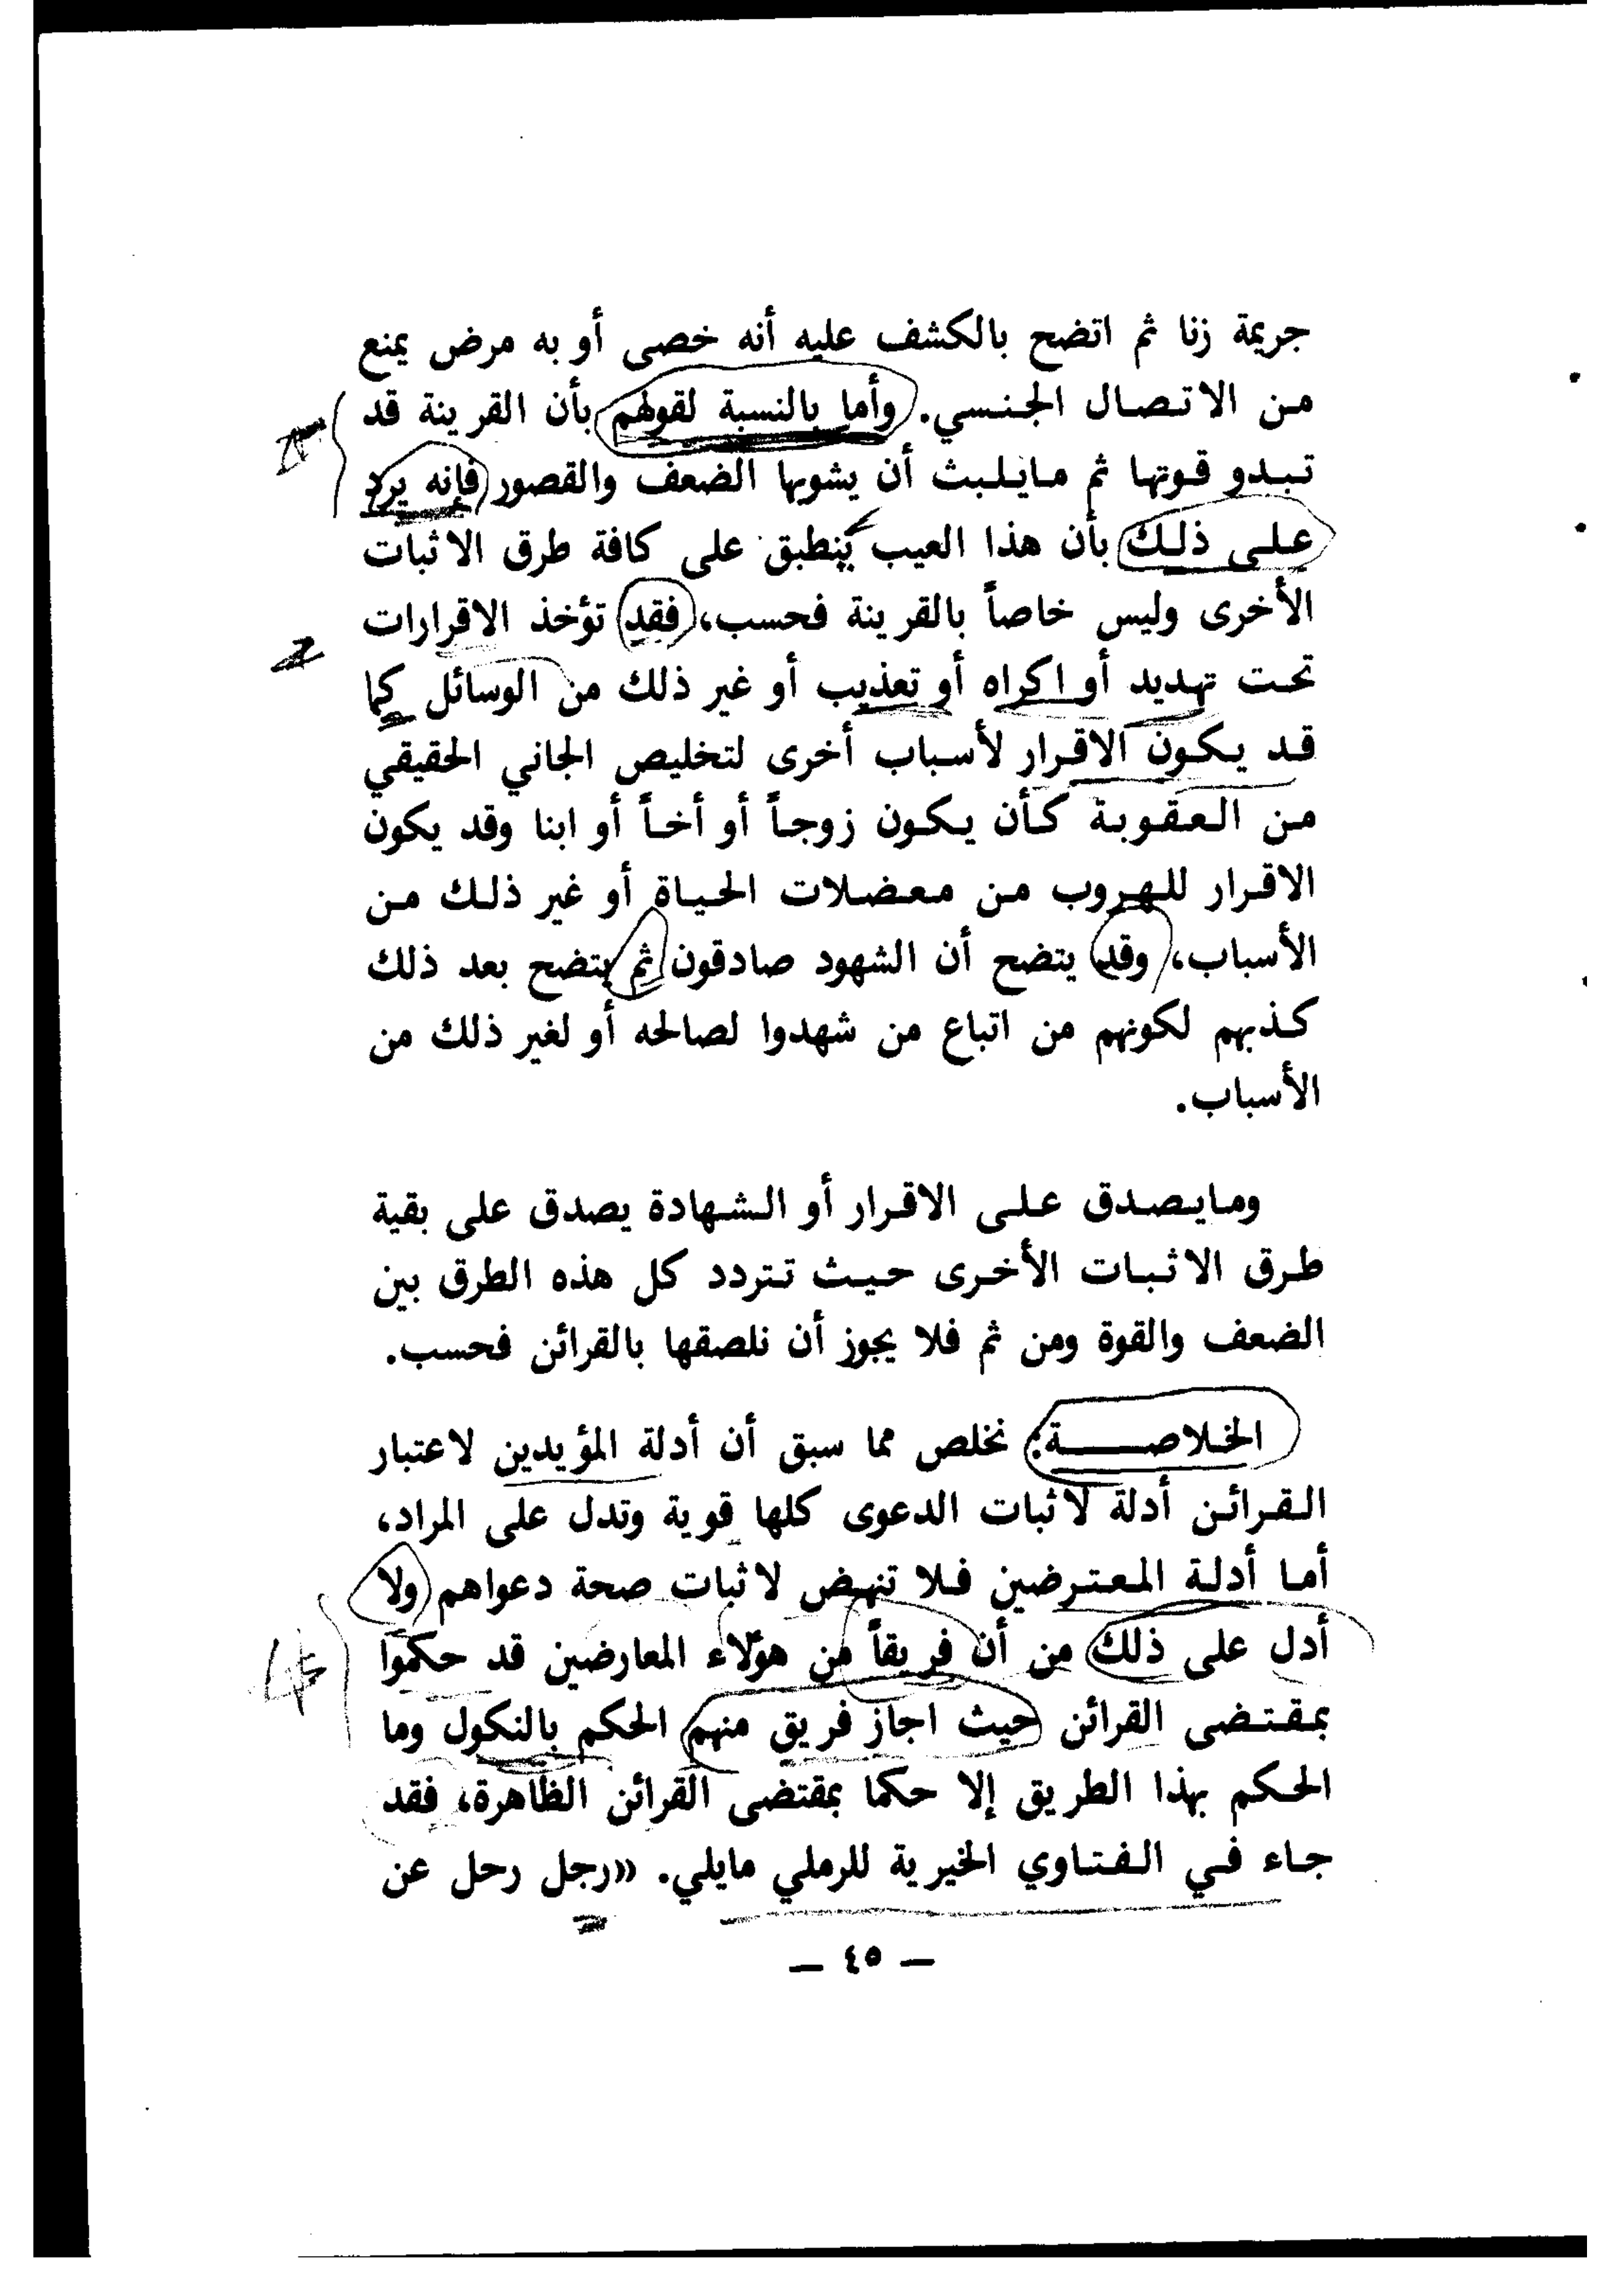 جريمة زنا ثم اتضح بالكشف عليه أنه خصى أو به مرض يمنع
من الاتصال الجنسي. وأما بالنسبة لقولهم بأن القرينة قد
تبدو قوتها ثم مايلبث أن يشوبها الضعف والقصور فإنه يرد
على ذلك بأن هذا العيب ينطبق على كافة طرق الاثبات
الأخرى وليس خاصاً بالقرينة فحسب، فقد تؤخذ الاقرارات
تحت تهديد أو اكراه أو تعذيب أو غير ذلك من الوسائل كما
قد يكون الاقرار لأسباب أخرى لتخليص الجاني الحقيقي
من العقوبة كأن يكون زوجاً أو أخاً أو ابنا وقد يكون
الاقرار للهروب من معضلات الحياة أو غير ذلك من
الأسباب، وقد يتضح أن الشهود صادقون ثم يتضح بعد ذلك
كذبهم لكونهم من اتباع من شهدوا لصالحه أو لغير ذلك من
الأسباب.
ومايصدق على الاقرار أو الشهادة يصدق على بقية
طرق الاثبات الأخرى حيث تتردد كل هذه الطرق بين
الضعف والقوة ومن ثم فلا يجوز أن نلصقها بالقرائن فحسب.
الخلاصـــــة: نخلص مما سبق أن أدلة المؤيدين لاعتبار
القرائن أدلة لاثبات الدعوى كلها قوية وتدل على المراد،
أما أدلة المعترضين فلا تنهض لاثبات صحة دعواهم ولا
أدل على ذلك من أن فريقاً من هؤلاء المعارضين قد حكموا
بمقتضى القرائن حيث اجاز فريق منهم الحكم بالنكول وما
الحكم بهذا الطريق إلا حكما بمقتضى القرائن الظاهرة، فقد
جاء في الفتاوي الخيرية للرملي مايلي. «رجل رحل عن
— ٤٥ —